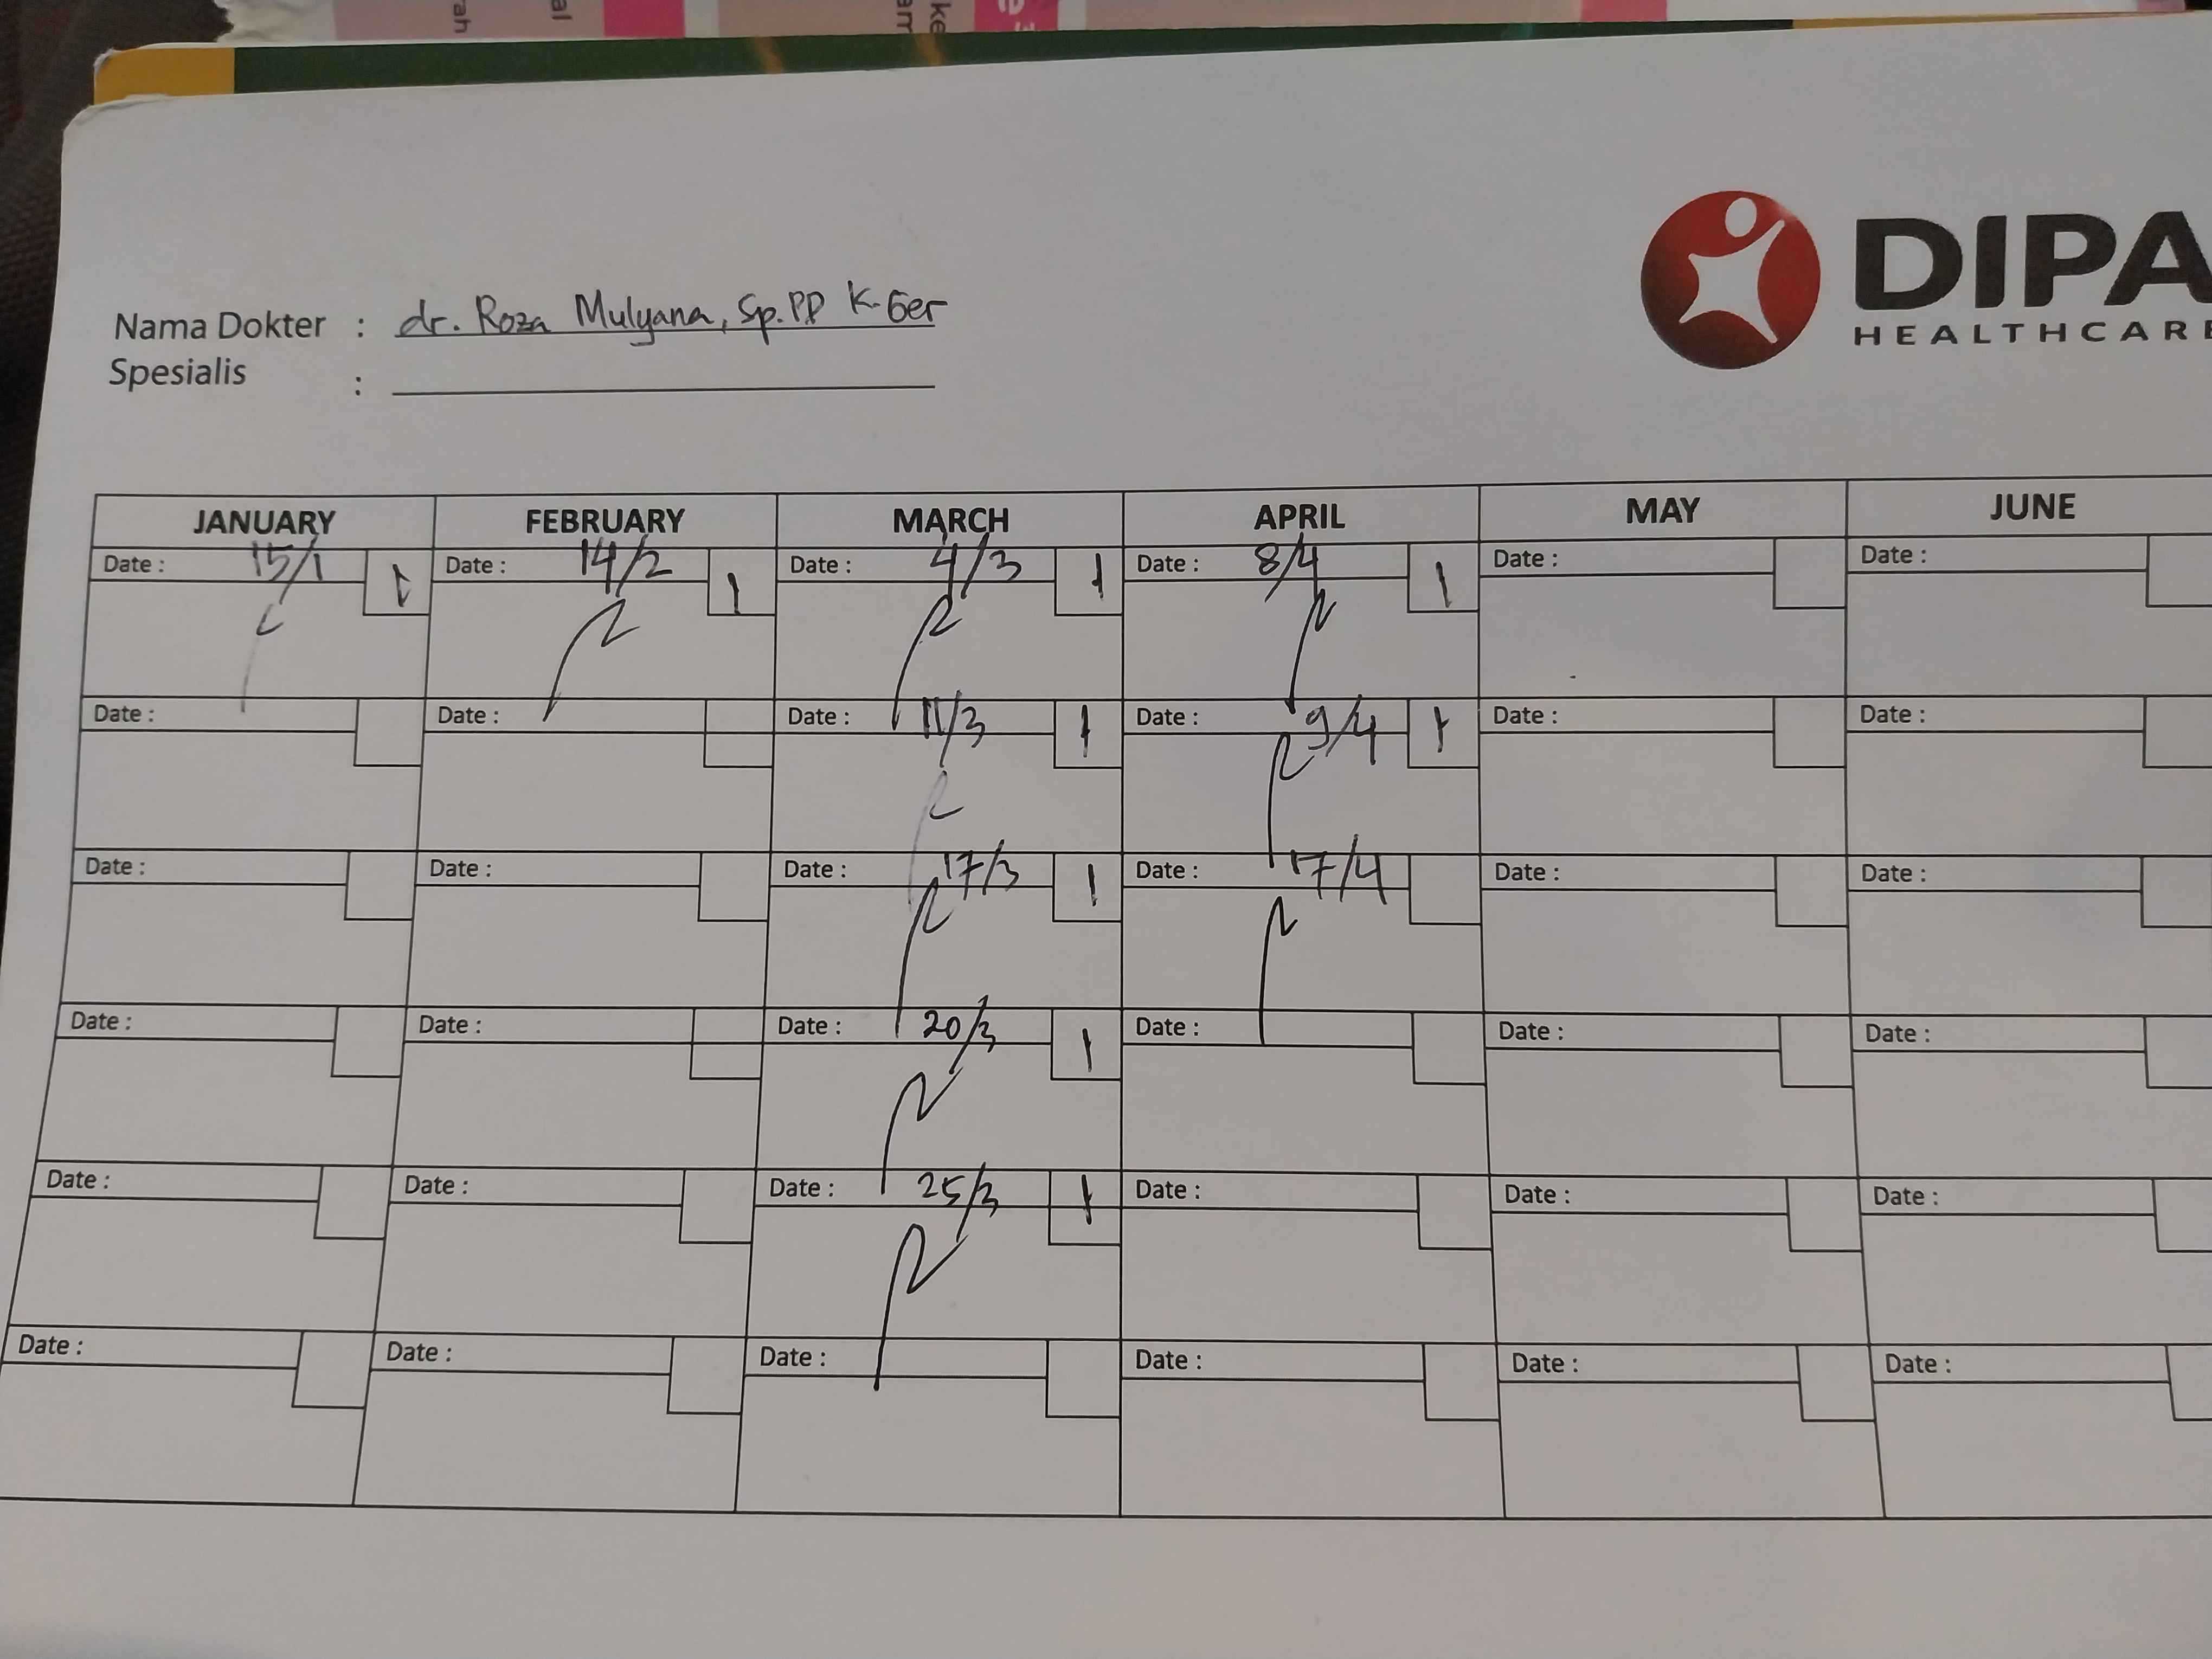 DIPA
HEALTHCARE
Nama Dokter : dr. Roza Mulyana, Sp.PD K-Ger
Spesialis :
JANUARY FEBRUARY MARCH APRIL MAY JUNE
Date : 15/1 1 Date : 14/2 1 Date : 4/3 1 Date : 8/4 1 Date : Date :
Date : Date : Date : 11/3 1 Date : 9/4 1 Date : Date :
Date : Date : Date : 17/3 1 Date : 17/4 Date : Date :
Date : Date : Date : 20/3 1 Date : Date : Date :
Date : Date : Date : 25/3 1 Date : Date : Date :
Date : Date : Date : Date : Date : Date :